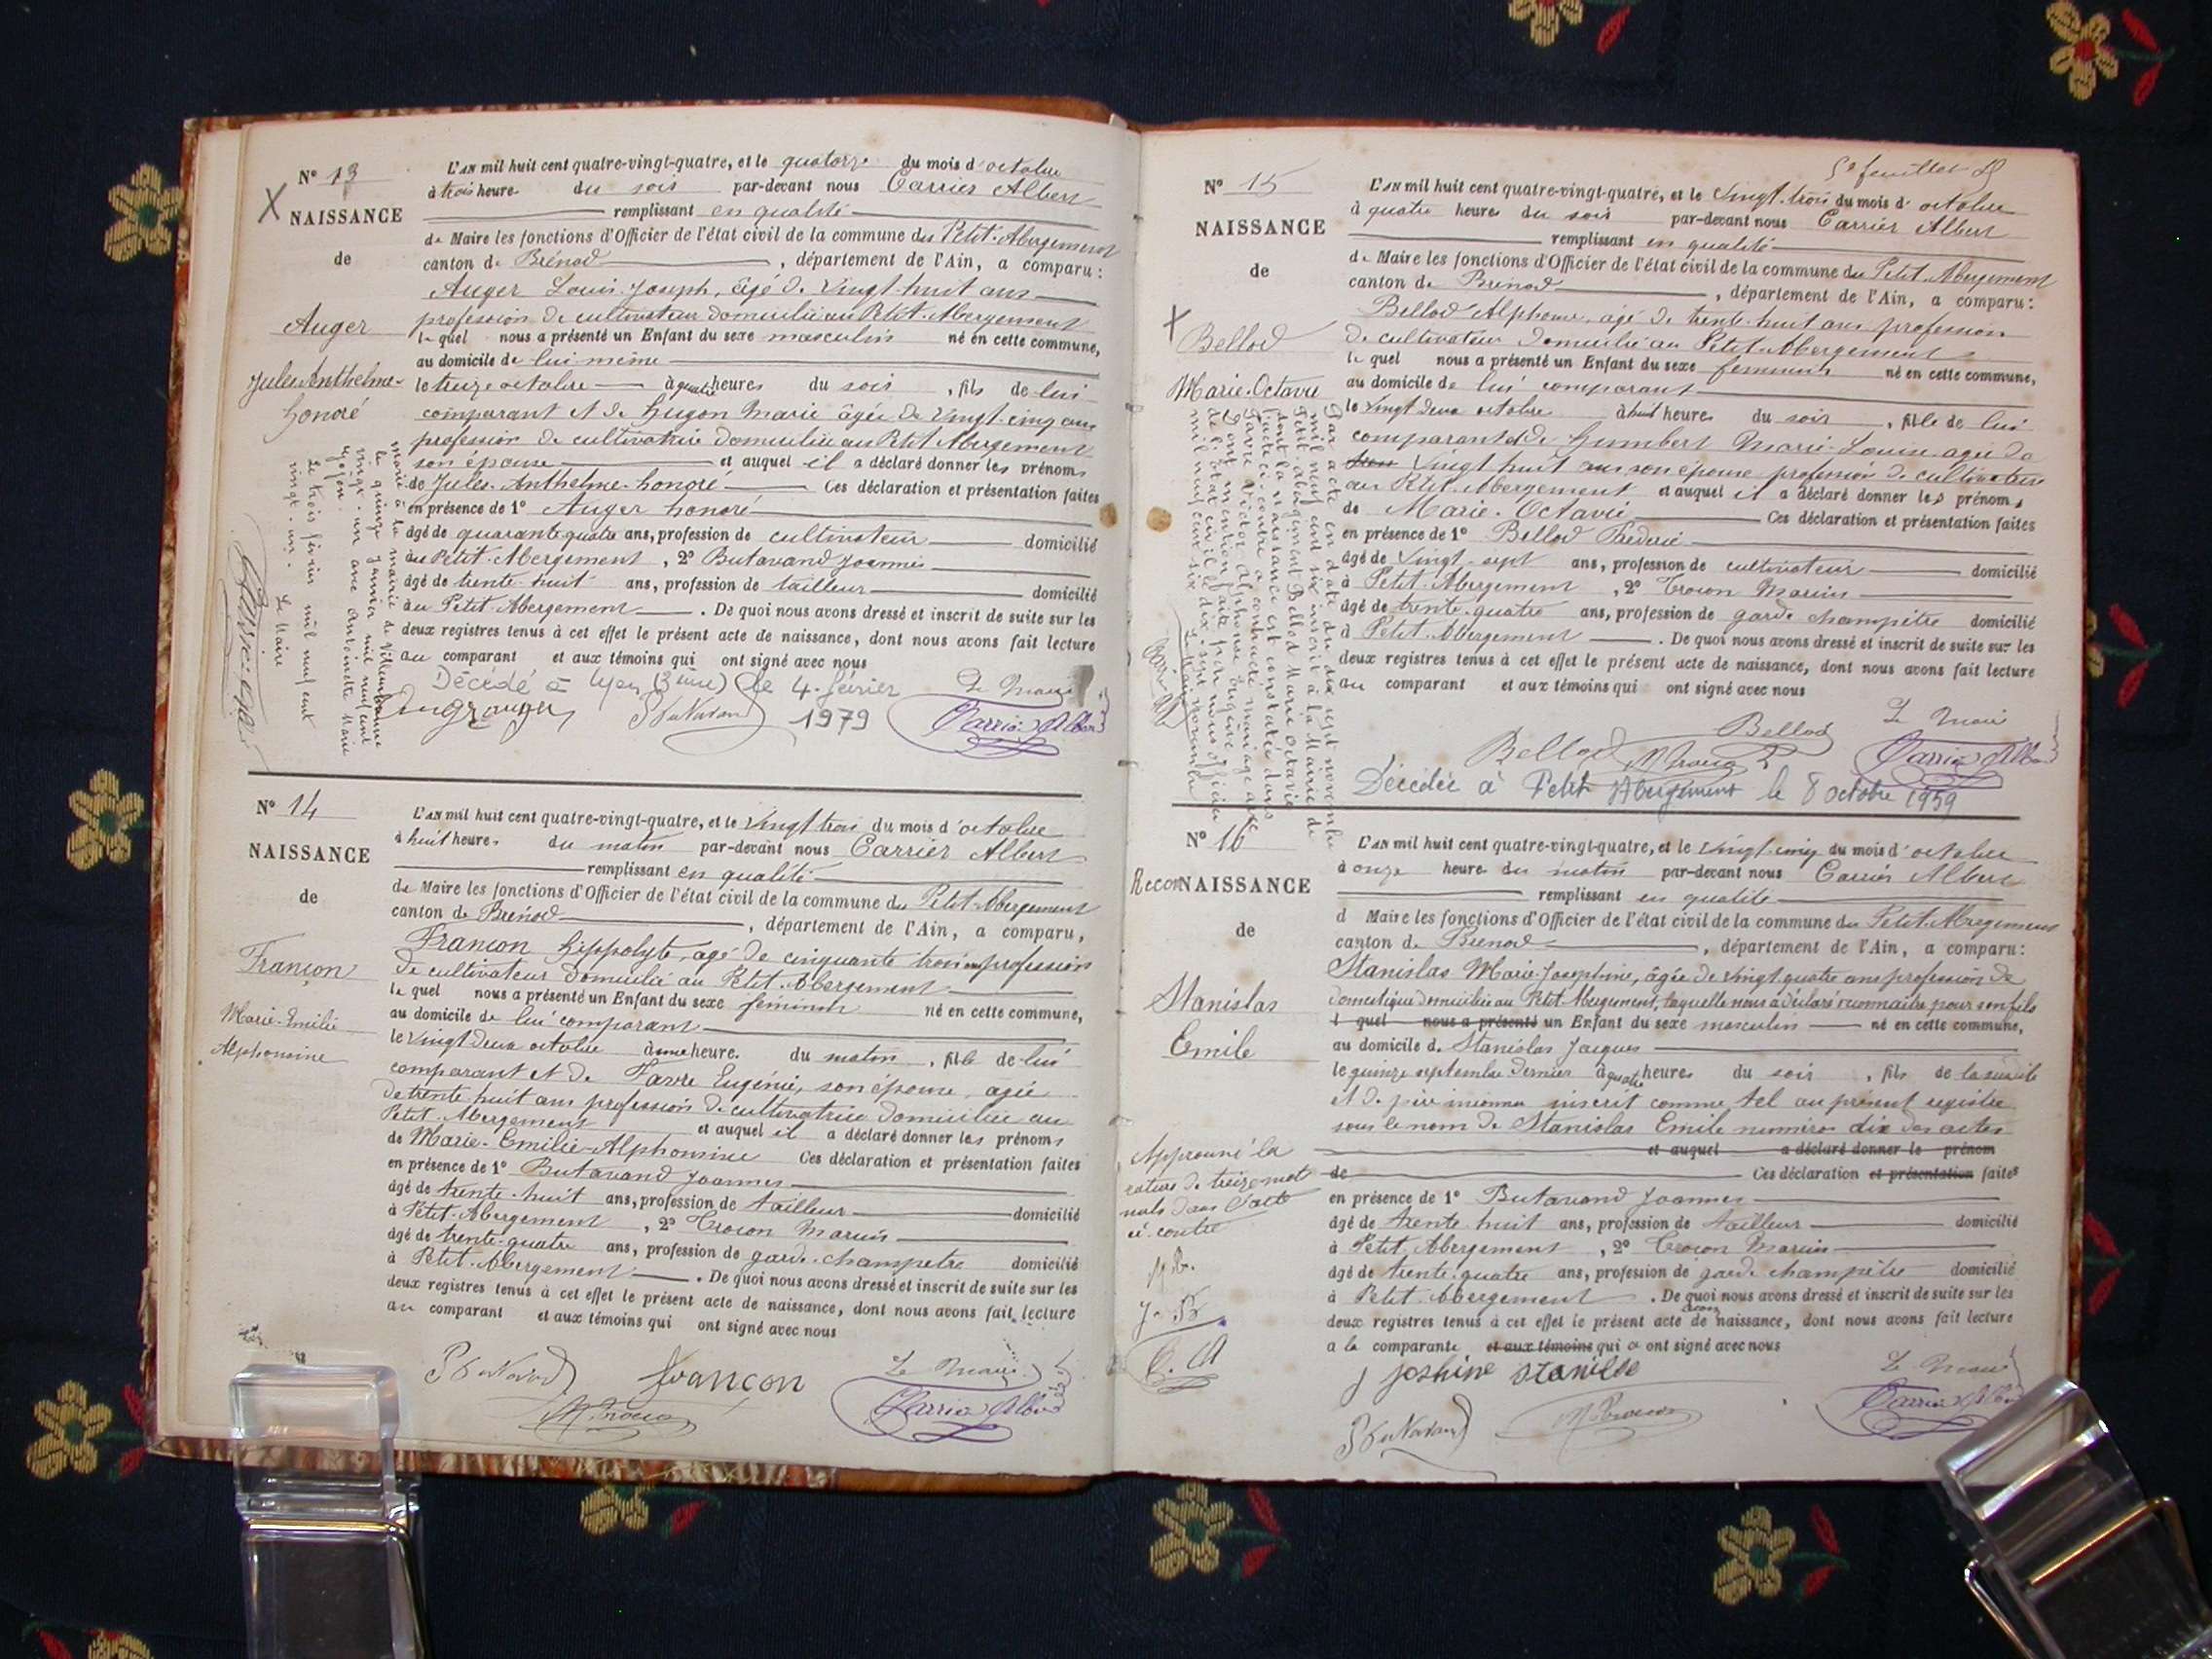 N° 13
NAISSANCE
de
Auger
Jules Anthelme
honoré
L'AN mil huit cent quatre-vingt-quatre, et le quatorze du mois d'octobre
à trois heures du soir par-devant nous Carrier Albert
remplissant en qualité
de Maire les fonctions d'Officier de l'état civil de la commune du Petit-Abergement
canton de Brénod, département de l'Ain, a comparu:
Auger Louis Joseph, âgé de vingt huit ans
profession de cultivateur domicilié au Petit-Abergement
lequel nous a présenté un Enfant du sexe masculin né en cette commune,
au domicile de lui même
le treize octobre à quatre heures du soir, fils de lui
comparant et de Hugon Marie âgée de vingt-cinq ans
profession de cultivatrice domiciliée au Petit Abergement
son épouse et auquel il a déclaré donner les prénoms
de Jules-Anthelme-honoré Ces déclaration et présentation faites
en présence de 1° Auger honoré
âgé de quarante quatre ans, profession de cultivateur domicilié
au Petit-Abergement, 2° Butavand Joannès
âgé de trente-huit ans, profession de tailleur domicilié
au Petit-Abergement. De quoi nous avons dressé et inscrit de suite sur les
deux registres tenus à cet effet le présent acte de naissance, dont nous avons fait lecture
au comparant et aux témoins qui ont signé avec nous
Décédé à Lyon (3ème) le 4 février
1979
Le Maire
Carrier Albert
marié à la mairie de Villeurbanne
le quinze janvier mil neuf cent
vingt-un avec Antoinette Marie
Le trois février mil neuf cent
vingt-un. Le Maire
N° 14
NAISSANCE
de
Françon
Marie-Emilie
Alphonsine
L'AN mil huit cent quatre-vingt-quatre, et le vingt trois du mois d'octobre
à huit heures du matin par-devant nous Carrier Albert
remplissant en qualité
de Maire les fonctions d'Officier de l'état civil de la commune du Petit-Abergement
canton de Brénod, département de l'Ain, a comparu,
Françon hippolyte, âgé de cinquante trois ans profession
de cultivateur domicilié au Petit-Abergement
lequel nous a présenté un Enfant du sexe féminin né en cette commune,
au domicile de lui comparant
le vingt deux octobre à une heure du matin, fille de lui
comparant et de Favre Eugénie, son épouse, agée
de trente huit ans profession de cultivatrice domiciliée au
Petit-Abergement et auquel il a déclaré donner les prénoms
de Marie-Emilie-Alphonsine Ces déclaration et présentation faites
en présence de 1° Butavand Joannès
âgé de trente-huit ans, profession de tailleur domicilié
à Petit-Abergement, 2° Trocon Marius
âgé de trente-quatre ans, profession de garde-champetre domicilié
à Petit-Abergement. De quoi nous avons dressé et inscrit de suite sur les
deux registres tenus à cet effet le présent acte de naissance, dont nous avons fait lecture
au comparant et aux témoins qui ont signé avec nous
françon
Le Maire
Carrier Albert
5e feuillet
N° 15
NAISSANCE
de
Bellod
Marie-Octavie
L'AN mil huit cent quatre-vingt-quatre, et le vingt-trois du mois d'octobre
à quatre heures du soir par-devant nous Carrier Albert
remplissant en qualité
de Maire les fonctions d'Officier de l'état civil de la commune du Petit-Abergement
canton de Brénod, département de l'Ain, a comparu:
Bellod Alphonse, agé de trente-huit ans profession
de cultivateur domicilié au Petit-Abergement
lequel nous a présenté un Enfant du sexe féminin né en cette commune,
au domicile de lui comparant
le vingt deux octobre à huit heures du soir, fille de lui
comparant et de Humbert Marie-Louise agée de
vingt huit ans son épouse profession de cultivatrice
au Petit-Abergement et auquel il a déclaré donner les prénoms
de Marie-Octavie Ces déclaration et présentation faites
en présence de 1° Bellod Frédéric
âgé de vingt-sept ans, profession de cultivateur domicilié
à Petit-Abergement, 2° Trocon Marius
âgé de trente-quatre ans, profession de garde champêtre domicilié
à Petit-Abergement. De quoi nous avons dressé et inscrit de suite sur les
deux registres tenus à cet effet le présent acte de naissance, dont nous avons fait lecture
au comparant et aux témoins qui ont signé avec nous
Bellod
Bellod
Le Maire
Carrier Albert
Décédée à Petit Abergement le 8 octobre 1959
Par acte en date du dix sept novembre
mil neuf cent six inscrit à la Mairie de
Petit-Abergement Bellod Marie Octavie
dont la naissance est constatée dans
l'acte ci-contre a contracté mariage avec
Favre Victor Alphonse Eugène
Dont mention faite par nous officier
de l'état civil le dix-sept novembre
mil neuf cent six
Le Maire
N° 16
ReconNAISSANCE
de
Stanislas
Emile
L'AN mil huit cent quatre-vingt-quatre, et le vingt-cinq du mois d'octobre
à onze heures du matin par-devant nous Carrier Albert
remplissant en qualité
d Maire les fonctions d'Officier de l'état civil de la commune du Petit-Abergement
canton de Brénod, département de l'Ain, a comparu:
Stanislas Marie-Joséphine, âgée de vingt quatre ans profession de
domestique domiciliée au Petit Abergement, laquelle nous a déclaré reconnaitre pour son fils
l quel nous a présenté un Enfant du sexe masculin né en cette commune,
au domicile de Stanislas Jacques
le quinze septembre dernier à quatre heures du soir, fils de la susdite
et de père inconnu inscrit comme tel au présent registre
sous le nom de Stanislas Emile numéro dix des actes
et auquel a déclaré donner le prénom
de Ces déclaration et présentation faites
en présence de 1° Butavand Joannès
âgé de trente-huit ans, profession de tailleur domicilié
à Petit-Abergement, 2° Trocon Marius
âgé de trente-quatre ans, profession de garde champêtre domicilié
à Petit-Abergement. De quoi nous avons dressé et inscrit de suite sur les
deux registres tenus à cet effet le présent acte de naissance, dont nous avons fait lecture
a la comparante et aux témoins qui a ont signé avec nous
Approuvé la
rature de treize mot
nuls dans l'acte
ci-contre
J. B.
C. A
Le Maire
Carrier Albert